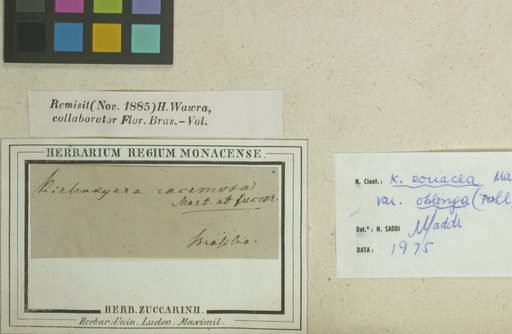 Remisit (Nov. 1885) H. Wawra,
collaborator Flor. Bras. – Vol.
HERBARIUM REGIUM MONACENSE.
Kielmeyera racemosa
Mart. et Zuccar.
Brasilia.
HERB. ZUCCARINII.
Herbar. Univ. Ludov. Maximil.
N. Cient.: K. coriacea Ma
var. oblonga (Pohl
Det.º: N. SADDI
DATA: 1975